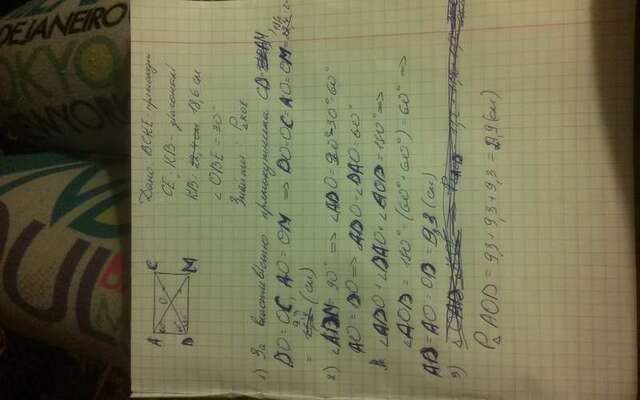 OKYO
DEJANEIRO
A C
O
D M
Дано BCKE - прямокут
CE, KB - діагоналі
KB = 18,6 см
∠OBE = 30°
Знайти: P△KOE
1) За властивістю прямокутника CD = AM,
DO = OC, AO = OM => DO = OC = AO = OM = 18,6 : 2
= 9,3 (см)
2) ∠ADM = 90° => ∠ADO = 90° - 30° = 60°
AO = DO => ∠ADO = ∠DAO = 60°
∠ADO + ∠DAO + ∠AOD = 180° =>
∠AOD = 180° - (60° + 60°) = 60° =>
AD = AO = OD = 9,3 (см)
3)
P△ AOD = 9,3 + 9,3 + 9,3 = 27,9 (см)